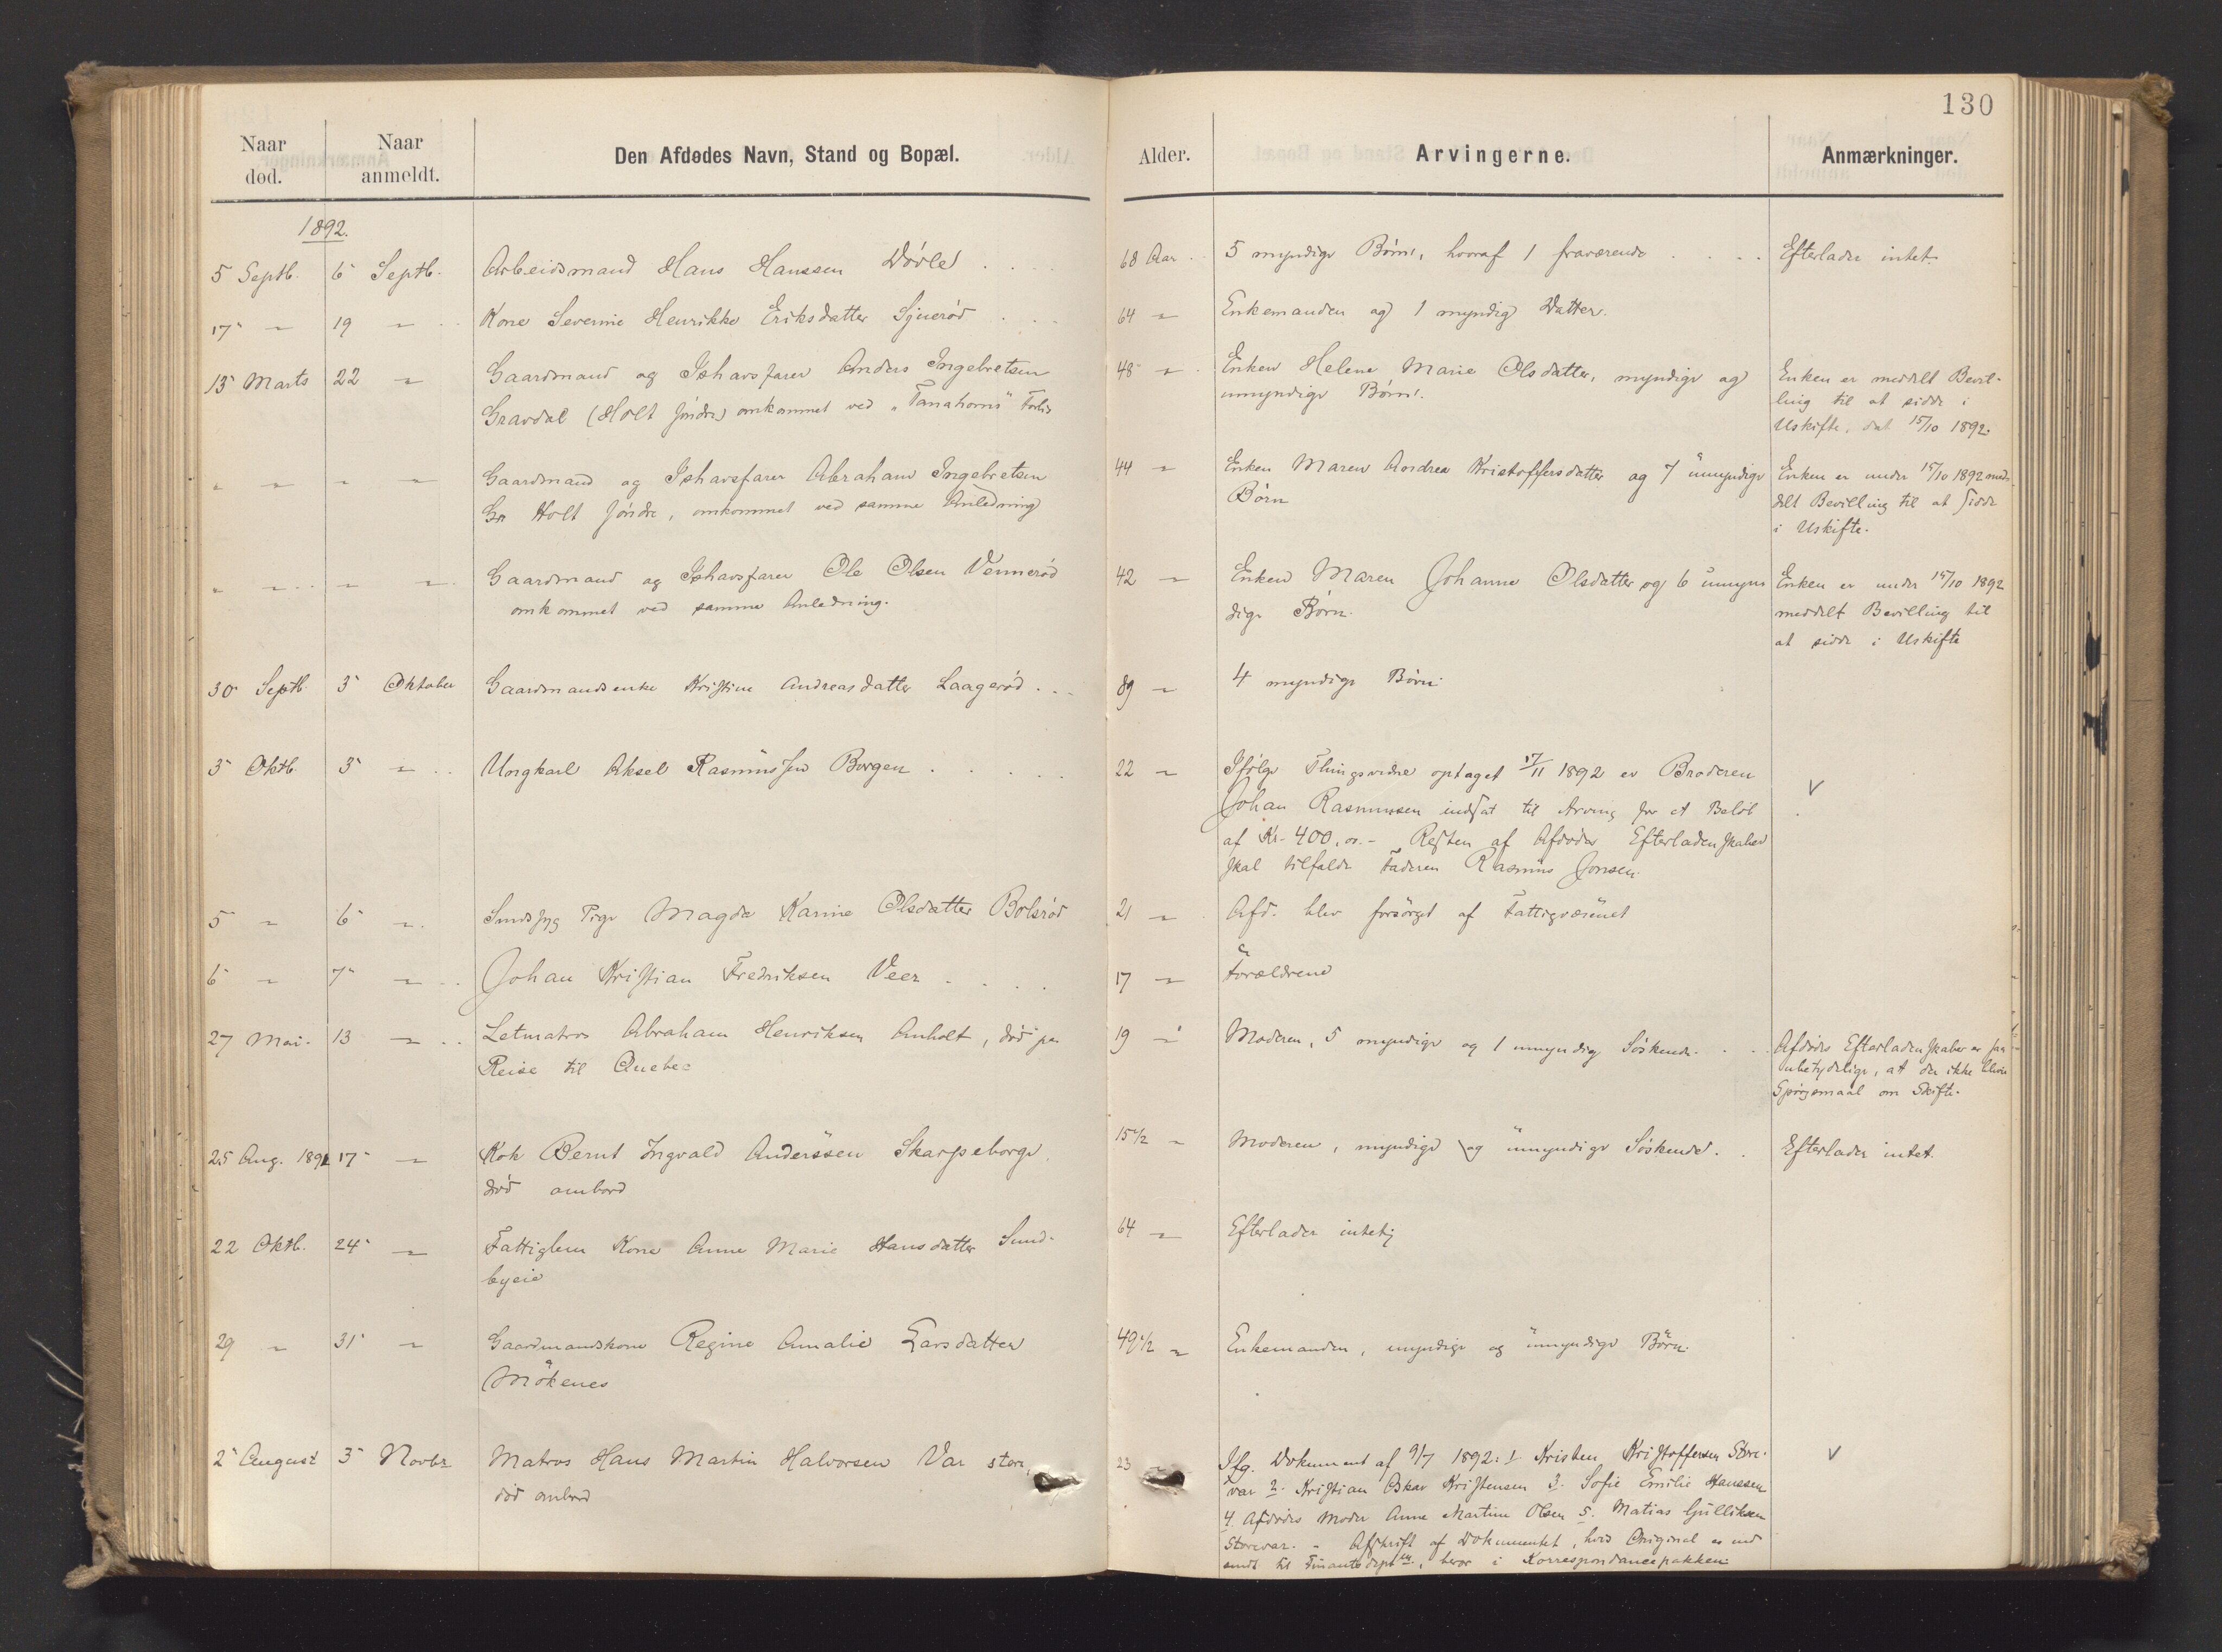 130
Naar død. Naar anmeldt. Den Afdødes Navn, Stand og Bopæl. Alder. Arvingerne. Anmærkninger.
1892.
5 Septb. 6 Septb. Arbeidsmand Hans Hanssen Døvle 68 Aar 5 myndige Børn, hvoraf 1 fraværende Efterlader intet.
17 " 19 " Kone Severine Henrikke Eriksdatter 64 " Enkemanden og 1 myndig Datter.
13 Marts 22 " Gaardmand og Ishavsfarer Anders Ingebretsen 48 " Enken Helene Marie Olsdatter, myndige og Enken er meddelt Bevil-
Gravdal (Holt søndre) omkommet ved "Tanahorns" Forlis umyndige Børn. ling til at sidde i
Uskifte, dat 15/10 1892.
" " " " Gaardmand og Ishavsfarer Abraham Ingebretsen 44 " Enken Maren Andrea Kristoffersdatter og 7 umyndige Enken er under 15/10 1892 med-
Holt søndre, omkommet ved samme Anledning Børn delt Bevilling til at sidde
i Uskifte.
" " " " Gaardmand og Ishavsfarer Ole Olsen Vennerød 42 " Enken Maren Johanne Olsdatter og 6 umyn Enken er under 15/10 1892
omkommet ved samme Anledning. dige Børn. meddelt Bevilling til
at sidde i Uskifte
30 Septb. 3 Oktober Gaardmandsenke Kristine Andreasdatter Laagerød 89 " 4 myndige Børn
3 Oktb. 5 " Ungkarl Aksel Rasmussen Borgen 22 " Ifølge Thingsvidne optaget 17/11 1892 er Broderen V
Johan Rasmussen indsat til Arving for et Beløb
af Kr. 400,00.- Resten af Afdødes Efterladenskaber
skal tilfalde Faderen Rasmus Jonsen.
5 " 6 " Sindssyg Pige Magda Karine Olsdatter Bolsrød 21 " Afd. blev forsørget af Fattigvæsenet
6 " 7 " Johan Kristian Fredriksen Veer 17 " Forældrene
27 Mai. 13 " Letmatros Abraham Henriksen Anholt, død paa 19 " Moderen, 5 myndige og 1 umyndig Søskende. Afdødes Efterladenskaber er saa
Reise til Quebec ubetydelige, at der ikke bliver
Spørgsmaal om Skifte.
25 Aug. 1891 17 " Kok Bernt Ingvald Anderssen Skarpeborge, 15 1/2 " Moderen, myndige og umyndige Søskende. Efterlader intet.
død ombord
22 Oktb. 24 " Fattiglem Kone Anne Marie Hansdatter Sund- 64 " Efterlader intet
byeie
29 " 31 " Gaardmandskone Regine Amalie Larsdatter 49 1/2 " Enkemanden, myndige og umyndige Børn.
Møkenes
2 August 3 Novbr Matros Hans Martin Halvorsen Var store, 23 Ifg. Dokument af 9/7 1892: 1. Kristen Kristoffersen Store- V
død ombord var 2. Kristian Oskar Kristensen 3. Sofie Emilie Hanssen
4. Afdødes Moder Anne Martine Olsen 5. Matias Gulliksen
Storevar. - Afskrift af Dokumentet, hvis Original er ind
sendt til Finantsdept., beror i Korrespondancepakken.